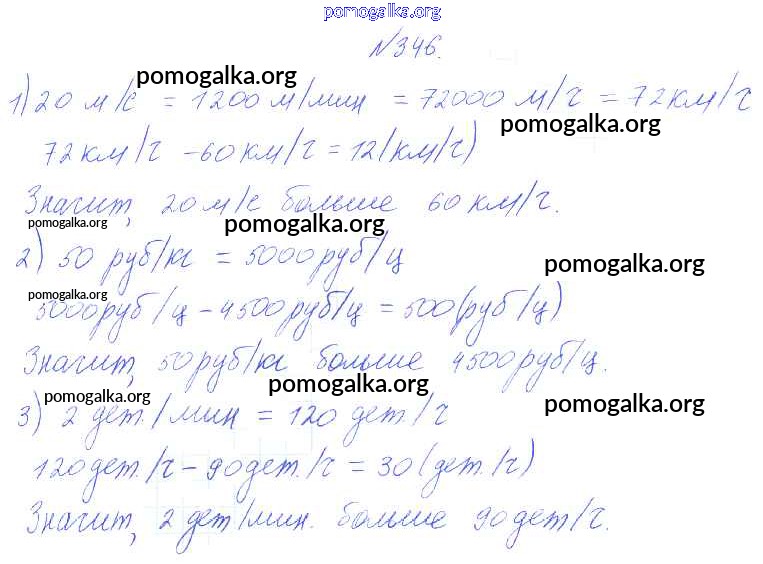 pomogalka.org
№346.
pomogalka.org
1) 20 м/с = 1200 м/мин = 72000 м/ч = 72 км/ч
pomogalka.org
72 км/ч - 60 км/ч = 12 (км/ч)
Значит, 20 м/с больше 60 км/ч.
pomogalka.org pomogalka.org
2) 50 руб/кг = 5000 руб/ц
pomogalka.org
pomogalka.org
5000 руб/ц - 4500 руб/ц = 500 (руб/ц)
Значит, 50 руб/кг больше 4500 руб/ц.
pomogalka.org pomogalka.org pomogalka.org
3) 2 дет./мин = 120 дет./ч
120 дет./ч - 90 дет./ч = 30 (дет./ч)
Значит, 2 дет/мин. больше 90 дет/ч.